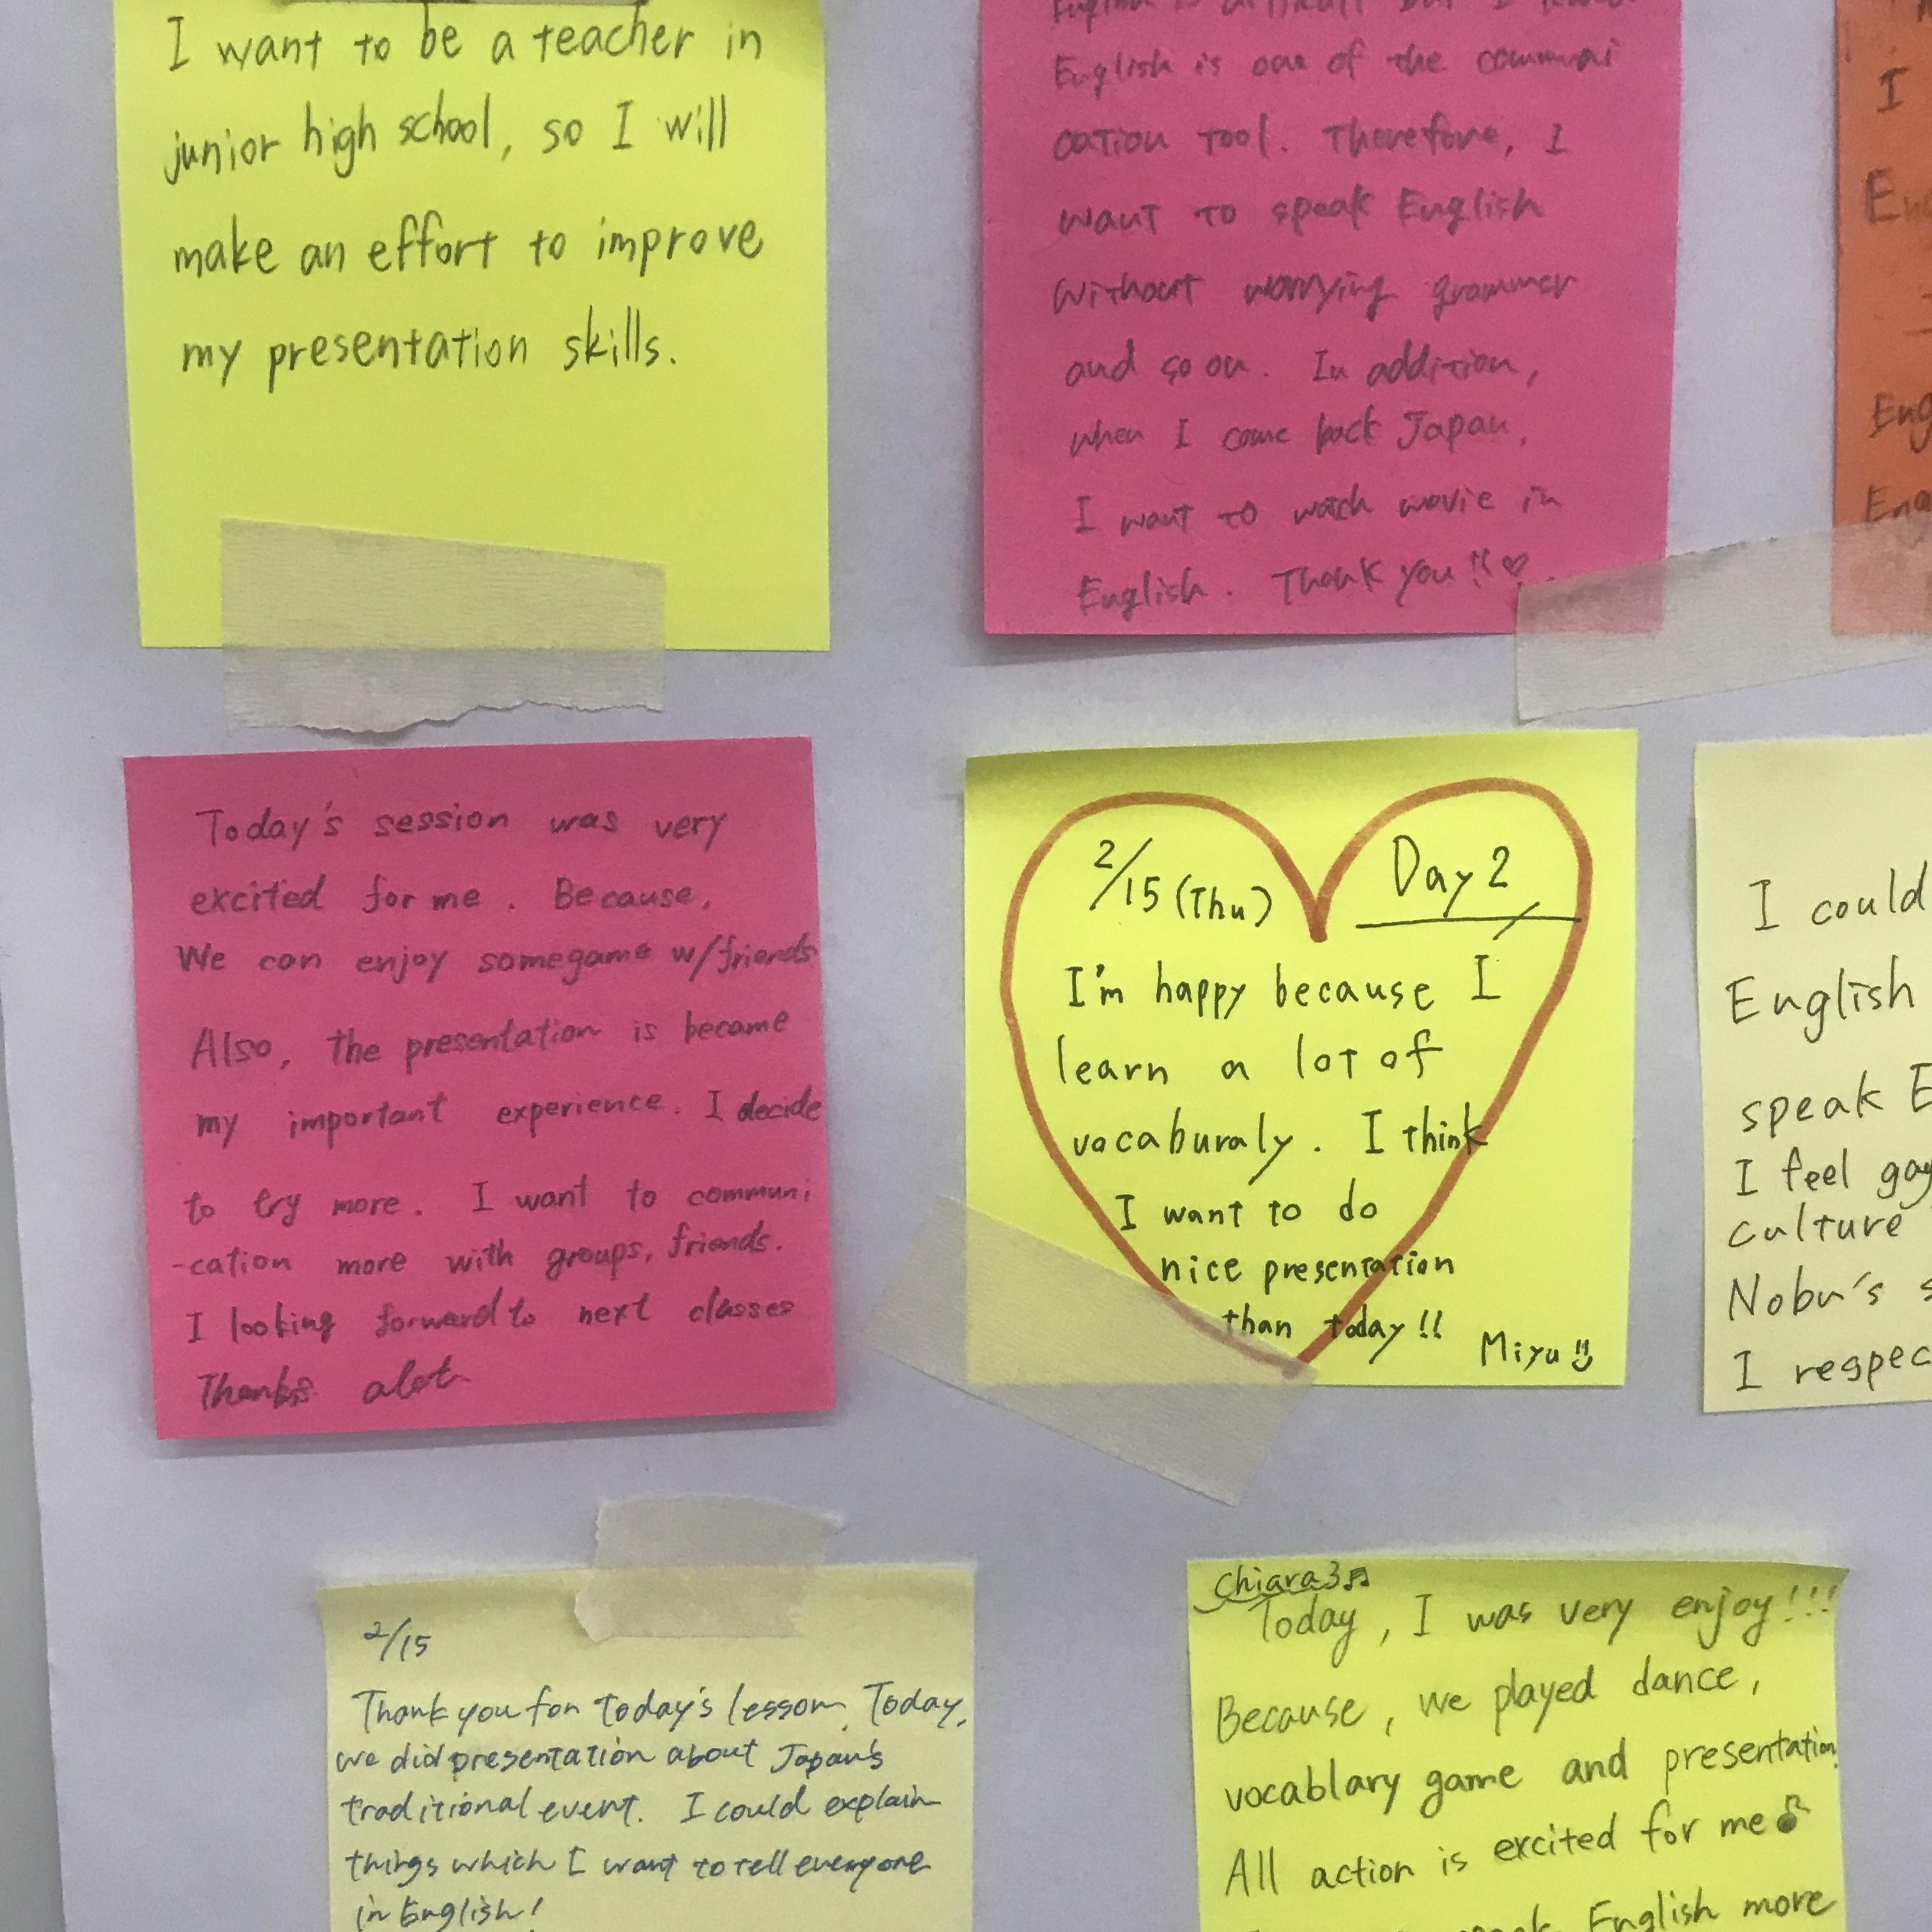 I want to be a teacher in
junior high school, so I will
make an effort to improve
my presentation skills.
English is difficult but I
English is one of the communi
cation tool. Therefore, I
want to speak English
without worrying grammer
and so on. In addition,
when I come back Japan,
I want to watch movie in
English. Thank you!!♡
I
Eng
Eng
Today's session was very
excited for me. Because,
We can enjoy somegame w/friends
Also, the presentation is became
my important experience. I decide
to try more. I want to communi
-cation more with groups, friends.
I looking forward to next classes
Thanks alot
2/15 (Thu) Day 2
I'm happy because I
learn a lot of
vocaburaly. I think
I want to do
nice presentation
than today!!
Miyu
I could
English
speak E
I feel gay
culture
Nobu's s
I respec
2/15
Thank you for today's lesson. Today,
we did presentation about Japan's
traditional event. I could explain
things which I want to tell everyone
in English!
Chiara3♬
Today, I was very enjoy!!!
Because, we played dance,
vocablary game and presentation.
All action is excited for me♪
English more